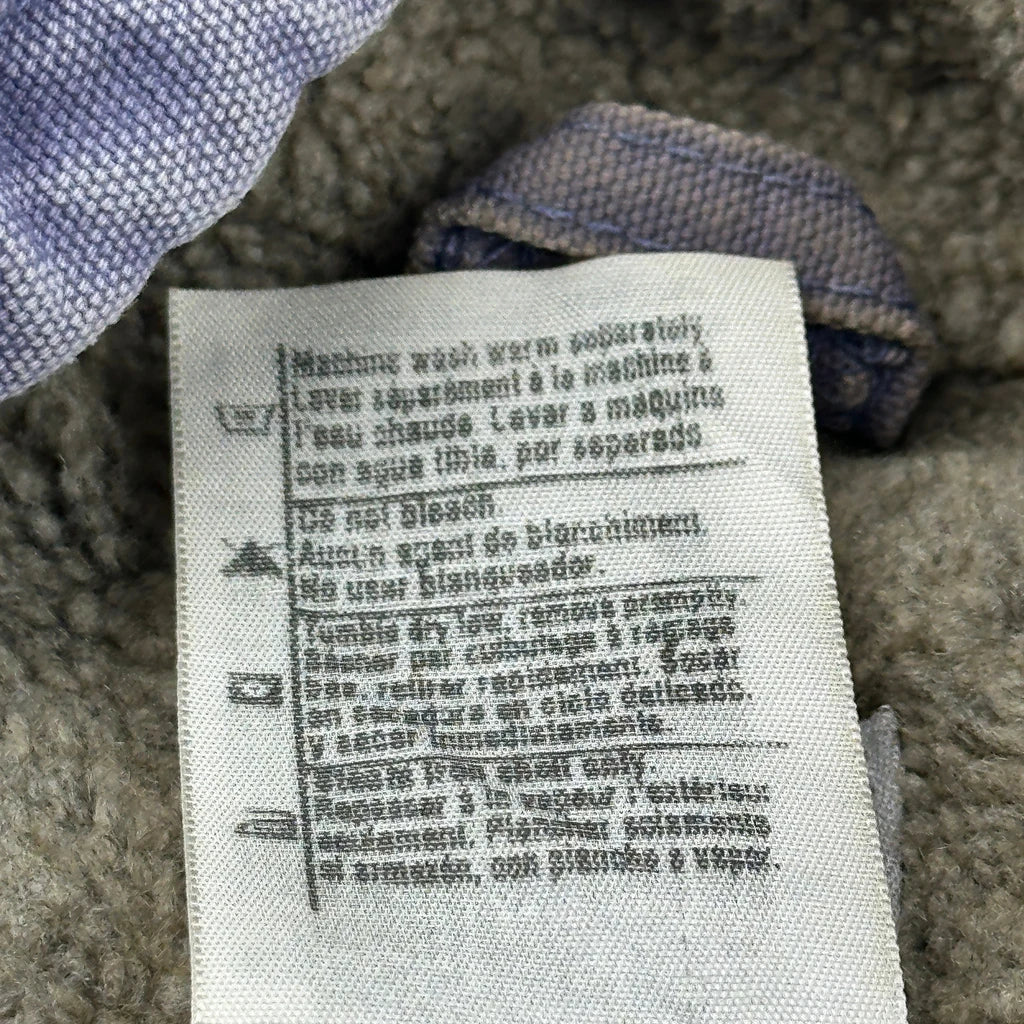 Machine wash warm separately
Laver séparément à la machine à
l'eau chaude. Lavar a maquina
con agua tibia, por separado
Do not bleach.
Aucun agent de blanchiment.
No usar blanqueador.
Tumble dry low, remove promptly.
Sécher par culbutage à réglage
bas, retirer rapidement. Secar
en secadora en ciclo delicado,
y sacar inmediatamente.
Steam iron shell only.
Repasser à la vapeur l'extérieur
seulement. Planchar solamente
el armazón, con plancha a vapor.